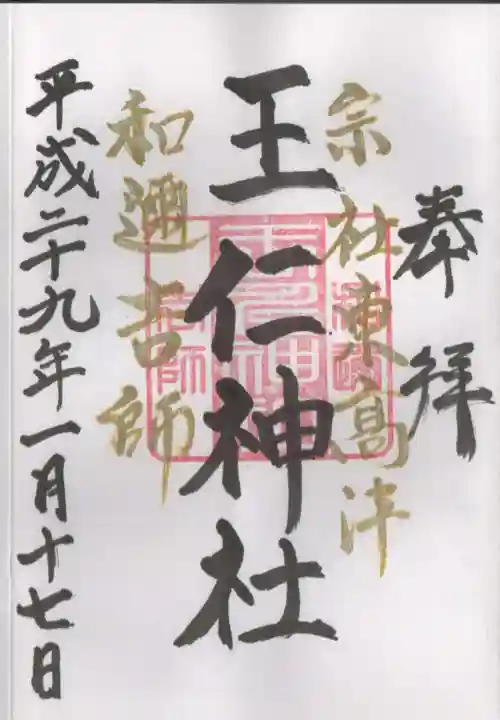 奉拝
宗社東高津
王仁神社
和邇吉師
平成二十九年一月十七日